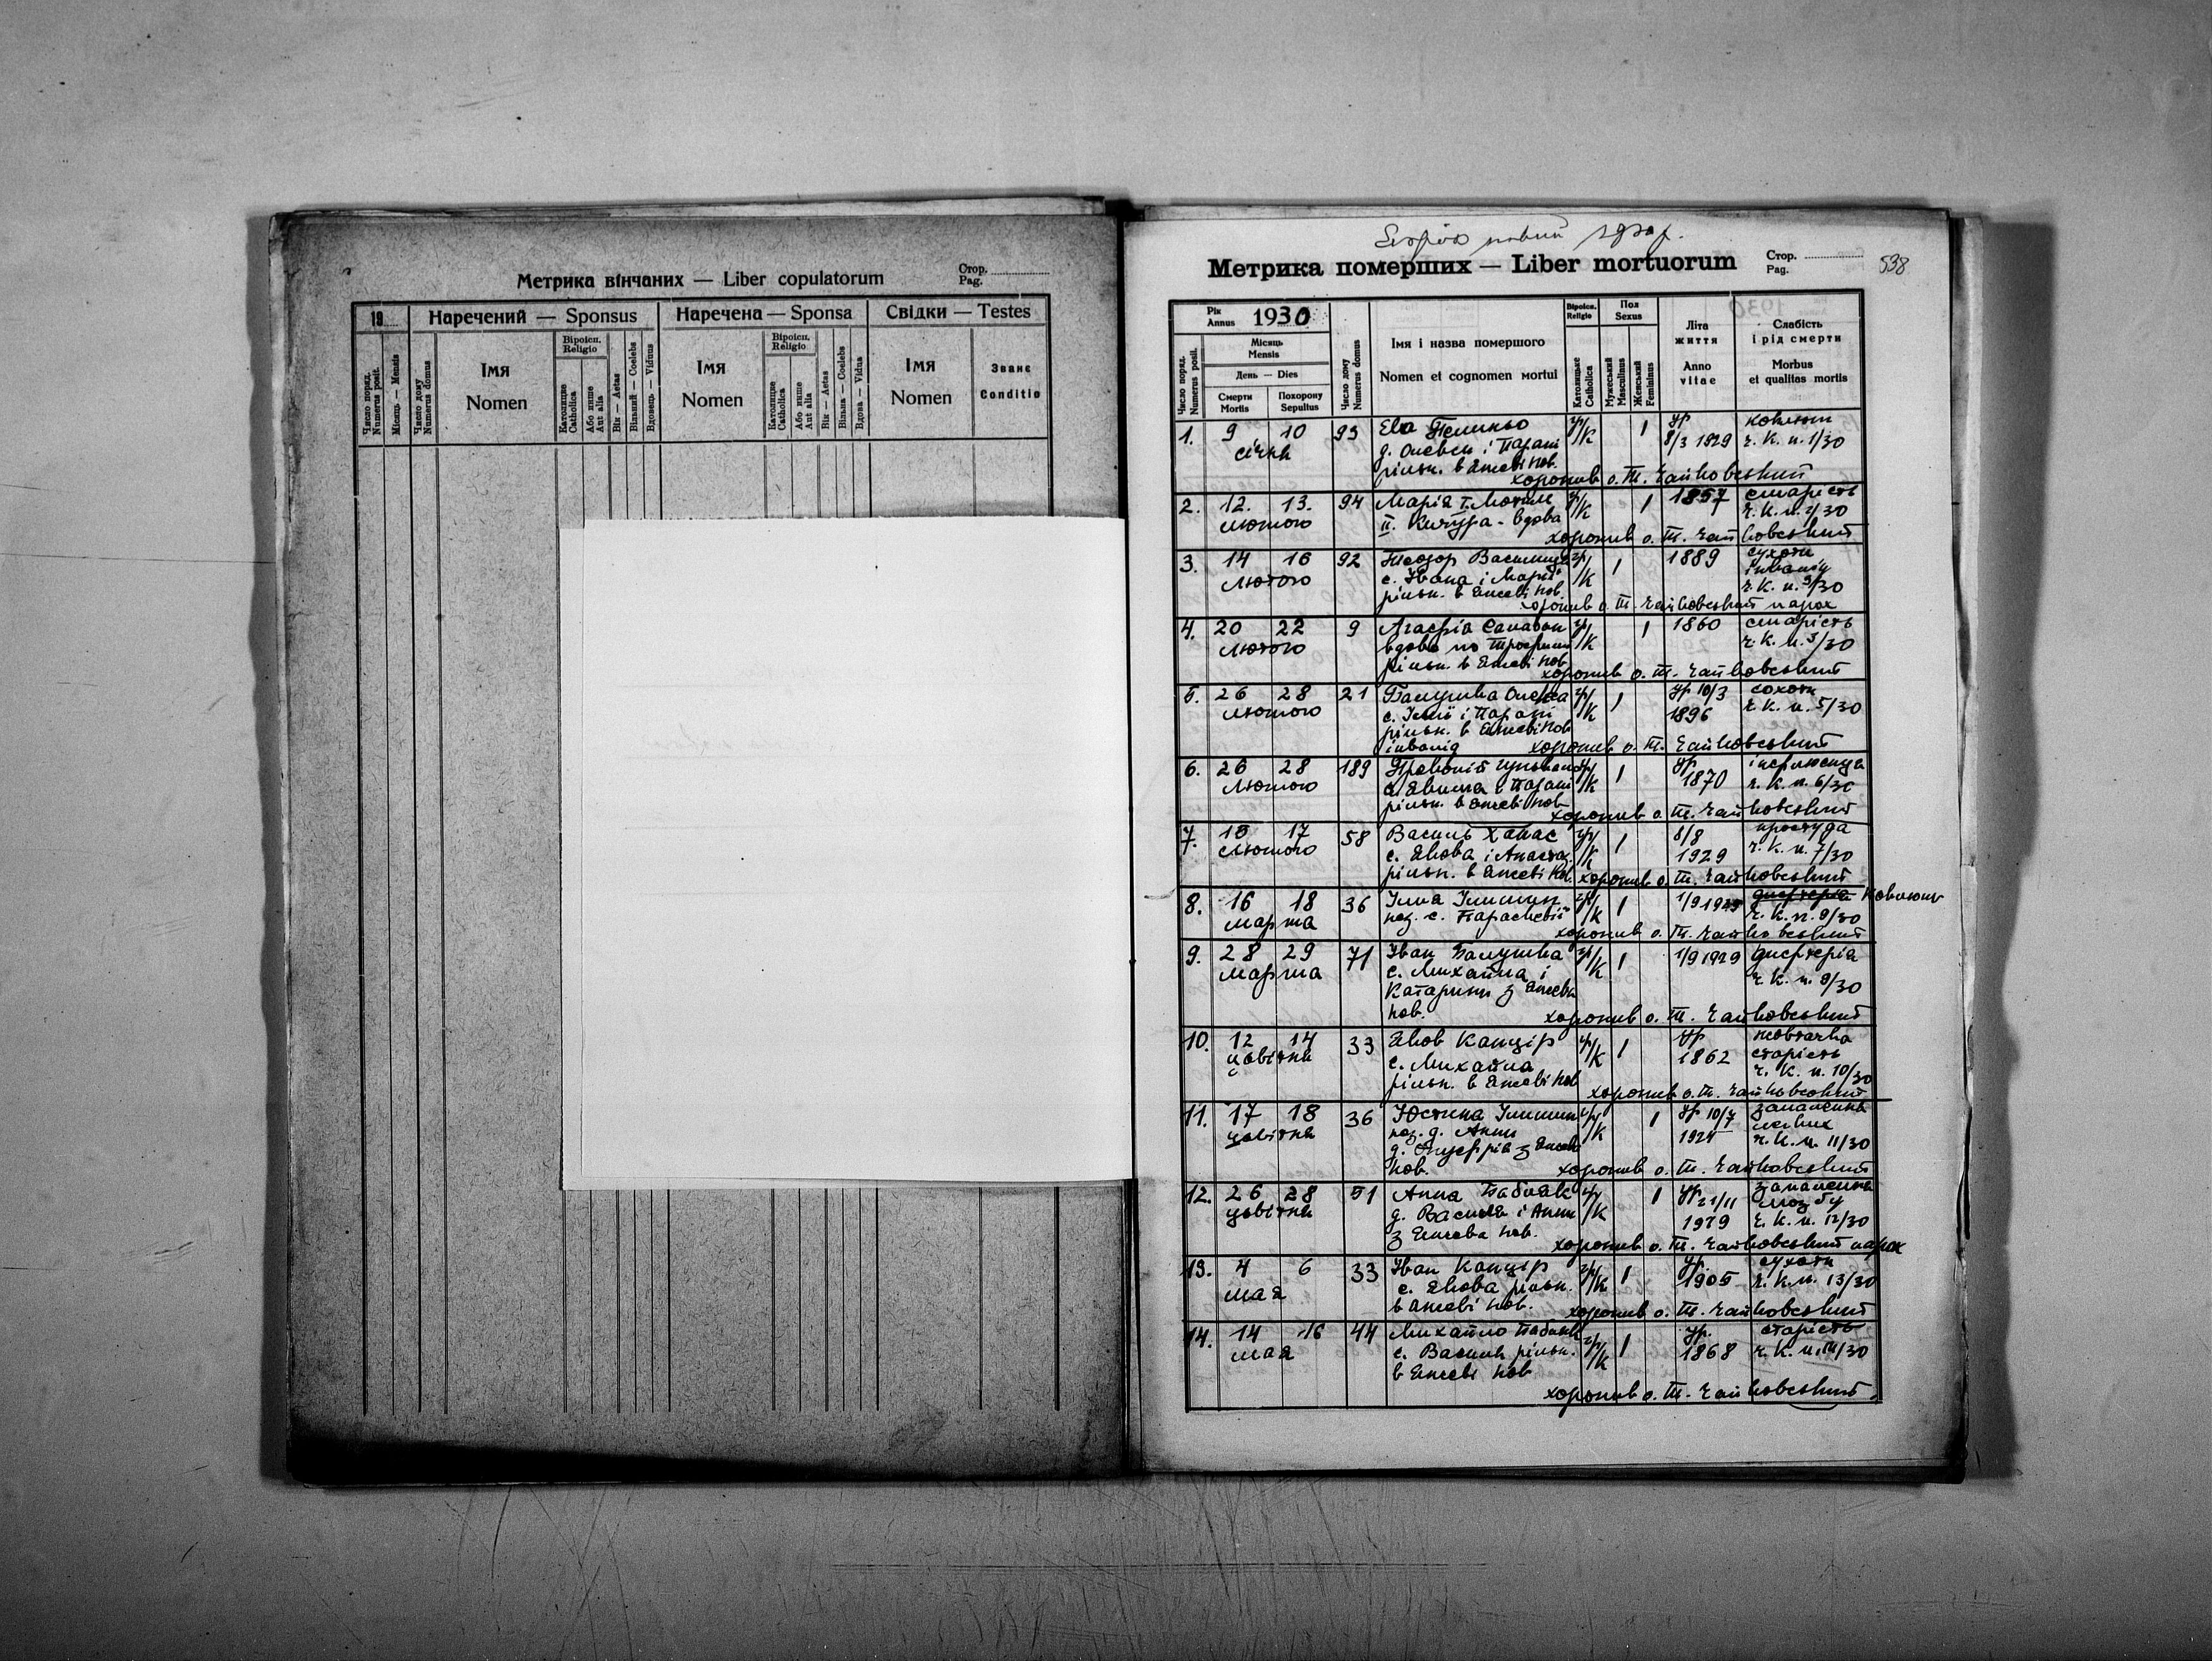 Метрика вінчаних — Liber copulatorum
Стор.
Pag.
19
Наречений — Sponsus
Наречена — Sponsa
Свідки — Testes
Число поряд.
Numerus posit.
Місяць — Mensis
Число дому
Numerus domus
Імя
Nomen
Віроісп.
Religio
Католицке
Catholica
Або инше
Aut alia
Вік — Aetas
Вільний — Coelebs
Вдовець — Viduus
Імя
Nomen
Віроісп.
Religio
Католицке
Catholica
Або инше
Aut alia
Вік — Aetas
Вільна — Coelebs
Вдова — Vidua
Імя
Nomen
Званє
Conditio
Метрика померших — Liber mortuorum
Стор.
Pag.
538
Рік
Annus 1930
Число поряд.
Numerus posit.
Місяць
Mensis
День — Dies
Смерти
Mortis
Похорону
Sepultus
Число дому
Numerus domus
Імя і назва помершого
Nomen et cognomen mortui
Віроісп.
Religio
Католицьке
Catholica
Пол
Sexus
Мужеський
Masculinus
Женський
Femininus
Літа
життя
Anno
vitae
Слабість
і рід смерти
Morbus
et qualitas mortis
1. 9 10 93 Ева гр/К 1 ур коклюш
січня д. і Парані 8/3 1929 ч. к. п. 1/30
рільн. в
хоронив о. Т. Чайковський
2. 12. 13. 94 Марія І. гр/К 1 1857 старість
лютого ІІ. Кичура - вдова ч. к. п. 2/30
хоронив о. Т. Чайковський
3. 14 16 92 Теодор гр/К 1 1889 сухоти
лютого с. Івана і Марії інвалід
рільн. в нов. ч. к. п. 3/30
хоронив о. Т. Чайковський парох
4. 20 22 9 гр/К 1 1860 старість
лютого вдова по ч. к. п. /30
рільн. в нов.
хоронив о. Т. Чайковський
5. 26 28 21 Балушка Олекса гр/К 1 ур 10/3 сохоти
лютого с. Ілії і Парані 1896 ч. к. п. 5/30
рільн. в нов
інвалід хоронив о. Т. Чайковський
6. 26 28 189 гр/К 1 ур 1870 інфлюенца
лютого і Парані ч. к. п. 6/30
рільн. в нов
хоронив о. Т. Чайковський
7. 15 17 58 Василь Ханас гр/К 1 8/8 простуда
лютого с. Якова і Анастаз. 1929 ч. к. п. 7/30
рільн. в нов. хоронив о. Т. Чайковський
8. 16 18 36 Ілля гр/К 1 1/9 дифтерія коклюш
марта поз. с. Параскевії ч. к. п. 9/30
хоронив о. Т. Чайковський
9. 28 29 71 Іван Балушка гр/К 1 1/9 1929 дифтерія
марта с. Михайла і
Катарини з ч. к. п. 8/30
нов. хоронив о. Т. Чайковський
10. 12 14 33 Яков Канцір гр/К 1 ур жовтачка
цвітня с. Михайла 1862 старість
рільн. в нов ч. к. п. 10/30
хоронив о. Т. Чайковський
11. 17 18 36 Юстина гр/К 1 ур 10/7 запалення
цвітня поз. д. Анни 1924 легких
д. Ануфрія з ч. к. п. 11/30
нов. хоронив о. Т. Чайковський
12. 26 28 51 Анна Бабляк гр/К 1 ур 21/11 запалення
цвітня д. Василя і Анни 1929 мозгу
з нов. ч. к. п. 12/30
хоронив о. Т. Чайковський парох
13. 4 6 33 Іван Канцір гр/К 1 ур. сухоти
мая с. Якова рільн. 1905 ч. к. п. 13/30
в нов. хоронив о. Т. Чайковський
14. 14 16 44 Михайло гр/К 1 ур. старість
мая с. Василя рільн. 1868 ч. к. п. 14/30
в нов
хоронив о. Т. Чайковський